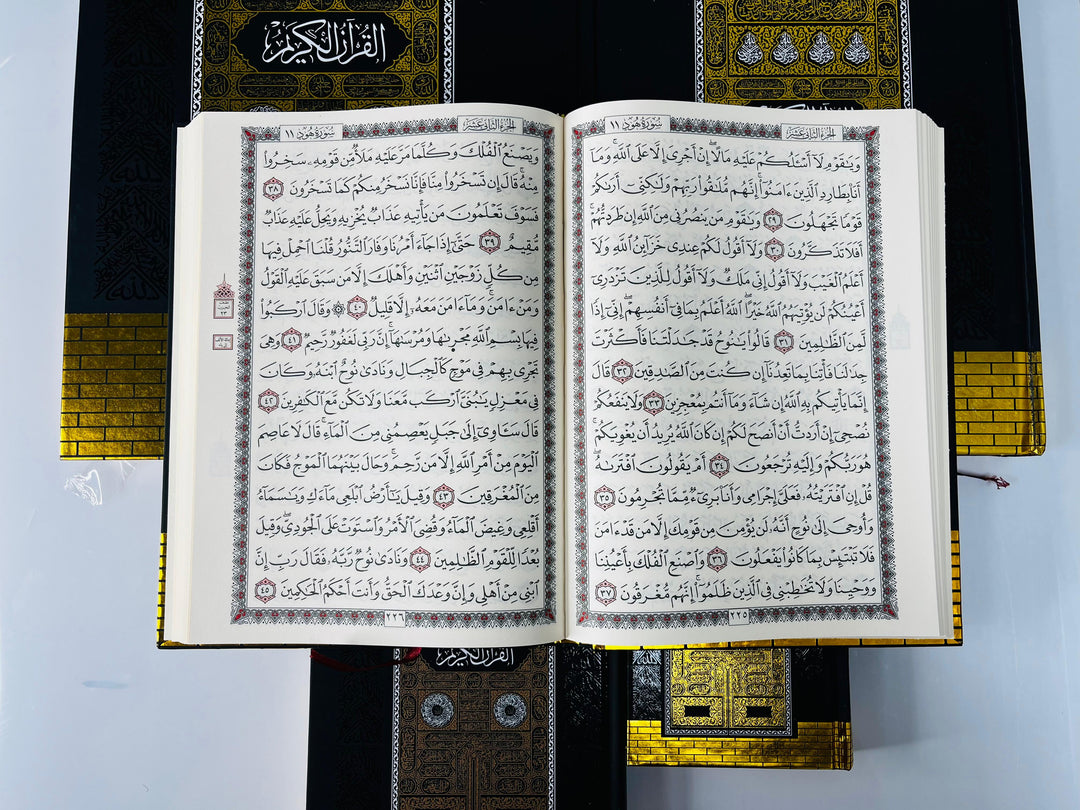 القرآن الكريم
سُورَةُ هُودٍ ١١
الجزء الثاني عشر
وَيَٰقَوْمِ لَآ أَسْـَٔلُكُمْ عَلَيْهِ مَالًا ۖ إِنْ أَجْرِىَ إِلَّا عَلَى ٱللَّهِ ۚ وَمَآ
أَنَا۠ بِطَارِدِ ٱلَّذِينَ ءَامَنُوٓا۟ ۚ إِنَّهُم مُّلَٰقُوا۟ رَبِّهِمْ وَلَٰكِنِّىٓ أَرَىٰكُمْ
قَوْمًا تَجْهَلُونَ ٢٩ وَيَٰقَوْمِ مَن يَنصُرُنِى مِنَ ٱللَّهِ إِن طَرَدتُّهُمْ ۚ
أَفَلَا تَذَكَّرُونَ ٣٠ وَلَآ أَقُولُ لَكُمْ عِندِى خَزَآئِنُ ٱللَّهِ وَلَآ
أَعْلَمُ ٱلْغَيْبَ وَلَآ أَقُولُ إِنِّى مَلَكٌ وَلَآ أَقُولُ لِلَّذِينَ تَزْدَرِىٓ
أَعْيُنُكُمْ لَن يُؤْتِيَهُمُ ٱللَّهُ خَيْرًا ۖ ٱللَّهُ أَعْلَمُ بِمَا فِىٓ أَنفُسِهِمْ ۖ إِنِّىٓ إِذًا
لَّمِنَ ٱلظَّٰلِمِينَ ٣١ قَالُوا۟ يَٰنُوحُ قَدْ جَٰدَلْتَنَا فَأَكْثَرْتَ
جِدَٰلَنَا فَأْتِنَا بِمَا تَعِدُنَآ إِن كُنتَ مِنَ ٱلصَّٰدِقِينَ ٣٢ قَالَ
إِنَّمَا يَأْتِيكُم بِهِ ٱللَّهُ إِن شَآءَ وَمَآ أَنتُم بِمُعْجِزِينَ ٣٣ وَلَا يَنفَعُكُمْ
نُصْحِىٓ إِنْ أَرَدتُّ أَنْ أَنصَحَ لَكُمْ إِن كَانَ ٱللَّهُ يُرِيدُ أَن يُغْوِيَكُمْ ۚ
هُوَ رَبُّكُمْ وَإِلَيْهِ تُرْجَعُونَ ٣٤ أَمْ يَقُولُونَ ٱفْتَرَىٰهُ ۖ
قُلْ إِنِ ٱفْتَرَيْتُهُۥ فَعَلَىَّ إِجْرَامِى وَأَنَا۠ بَرِىٓءٌ مِّمَّا تُجْرِمُونَ ٣٥
وَأُوحِىَ إِلَىٰ نُوحٍ أَنَّهُۥ لَن يُؤْمِنَ مِن قَوْمِكَ إِلَّا مَن قَدْ ءَامَنَ
فَلَا تَبْتَئِسْ بِمَا كَانُوا۟ يَفْعَلُونَ ٣٦ وَٱصْنَعِ ٱلْفُلْكَ بِأَعْيُنِنَا
وَوَحْيِنَا وَلَا تُخَٰطِبْنِى فِى ٱلَّذِينَ ظَلَمُوٓا۟ ۚ إِنَّهُم مُّغْرَقُونَ ٣٧
٢٢٥
الجزء الثاني عشر
سُورَةُ هُودٍ ١١
وَيَصْنَعُ ٱلْفُلْكَ وَكُلَّمَا مَرَّ عَلَيْهِ مَلَأٌ مِّن قَوْمِهِۦ سَخِرُوا۟
مِنْهُ ۚ قَالَ إِن تَسْخَرُوا۟ مِنَّا فَإِنَّا نَسْخَرُ مِنكُمْ كَمَا تَسْخَرُونَ ٣٨
فَسَوْفَ تَعْلَمُونَ مَن يَأْتِيهِ عَذَابٌ يُخْزِيهِ وَيَحِلُّ عَلَيْهِ عَذَابٌ
مُّقِيمٌ ٣٩ حَتَّىٰٓ إِذَا جَآءَ أَمْرُنَا وَفَارَ ٱلتَّنُّورُ قُلْنَا ٱحْمِلْ فِيهَا
مِن كُلٍّ زَوْجَيْنِ ٱثْنَيْنِ وَأَهْلَكَ إِلَّا مَن سَبَقَ عَلَيْهِ ٱلْقَوْلُ
وَمَنْ ءَامَنَ ۚ وَمَآ ءَامَنَ مَعَهُۥٓ إِلَّا قَلِيلٌ ٤٠ ۞ وَقَالَ ٱرْكَبُوا۟
فِيهَا بِسْمِ ٱللَّهِ مَجْر۪ىٰهَا وَمُرْسَىٰهَآ ۚ إِنَّ رَبِّى لَغَفُورٌ رَّحِيمٌ ٤١ وَهِىَ
تَجْرِى بِهِمْ فِى مَوْجٍ كَٱلْجِبَالِ وَنَادَىٰ نُوحٌ ٱبْنَهُۥ وَكَانَ
فِى مَعْزِلٍ يَٰبُنَىَّ ٱرْكَب مَّعَنَا وَلَا تَكُن مَّعَ ٱلْكَٰفِرِينَ ٤٢
قَالَ سَـَٔاوِىٓ إِلَىٰ جَبَلٍ يَعْصِمُنِى مِنَ ٱلْمَآءِ ۚ قَالَ لَا عَاصِمَ
ٱلْيَوْمَ مِنْ أَمْرِ ٱللَّهِ إِلَّا مَن رَّحِمَ ۚ وَحَالَ بَيْنَهُمَا ٱلْمَوْجُ فَكَانَ
مِنَ ٱلْمُغْرَقِينَ ٤٣ وَقِيلَ يَٰٓأَرْضُ ٱبْلَعِى مَآءَكِ وَيَٰسَمَآءُ
أَقْلِعِى وَغِيضَ ٱلْمَآءُ وَقُضِىَ ٱلْأَمْرُ وَٱسْتَوَتْ عَلَى ٱلْجُودِىِّ ۖ وَقِيلَ
بُعْدًا لِّلْقَوْمِ ٱلظَّٰلِمِينَ ٤٤ وَنَادَىٰ نُوحٌ رَّبَّهُۥ فَقَالَ رَبِّ إِنَّ
ٱبْنِى مِنْ أَهْلِى وَإِنَّ وَعْدَكَ ٱلْحَقُّ وَأَنتَ أَحْكَمُ ٱلْحَٰكِمِينَ ٤٥
٢٢٦
القرآن الكريم